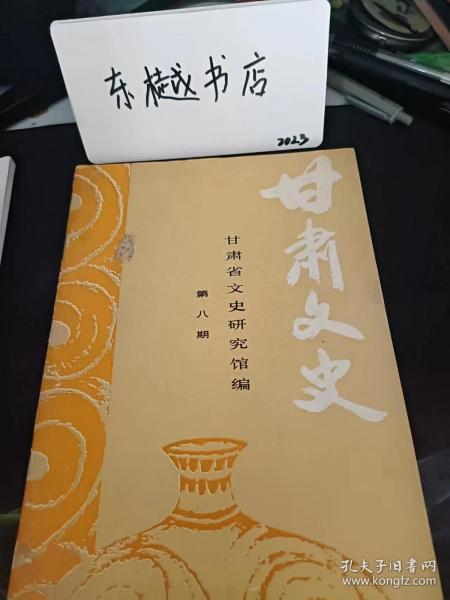 东樾书店
2023
甘肃文史
甘肃省文史研究馆编
第八期
孔夫子旧书网
www.kongfz.com